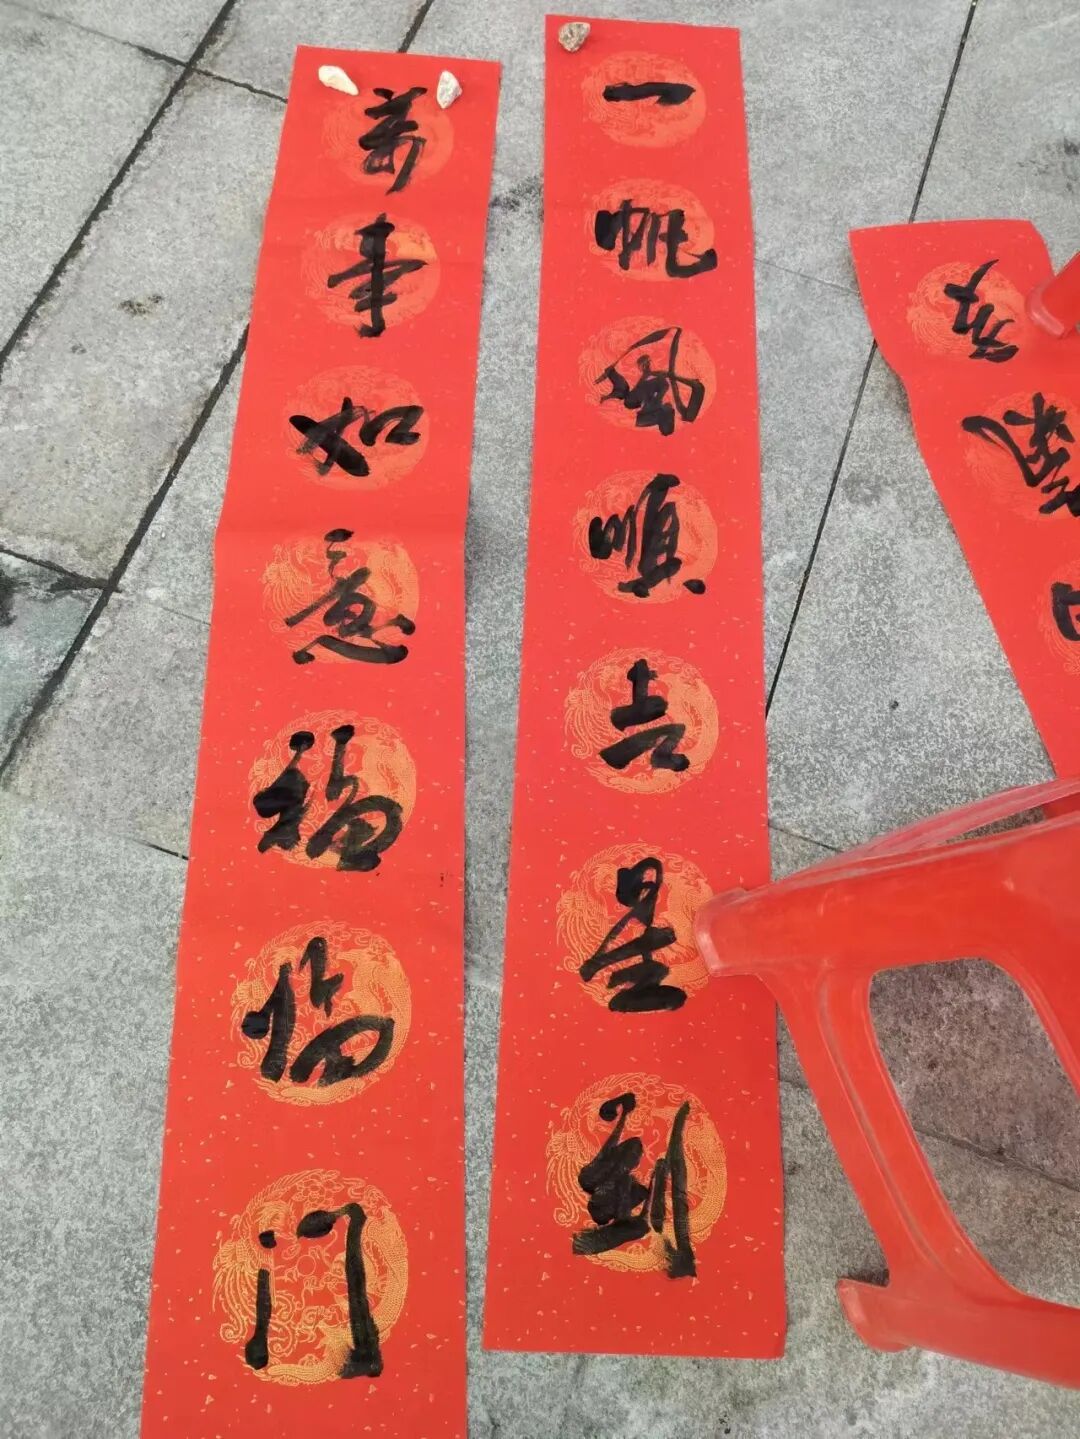 一帆風順吉星到
萬事如意福临门